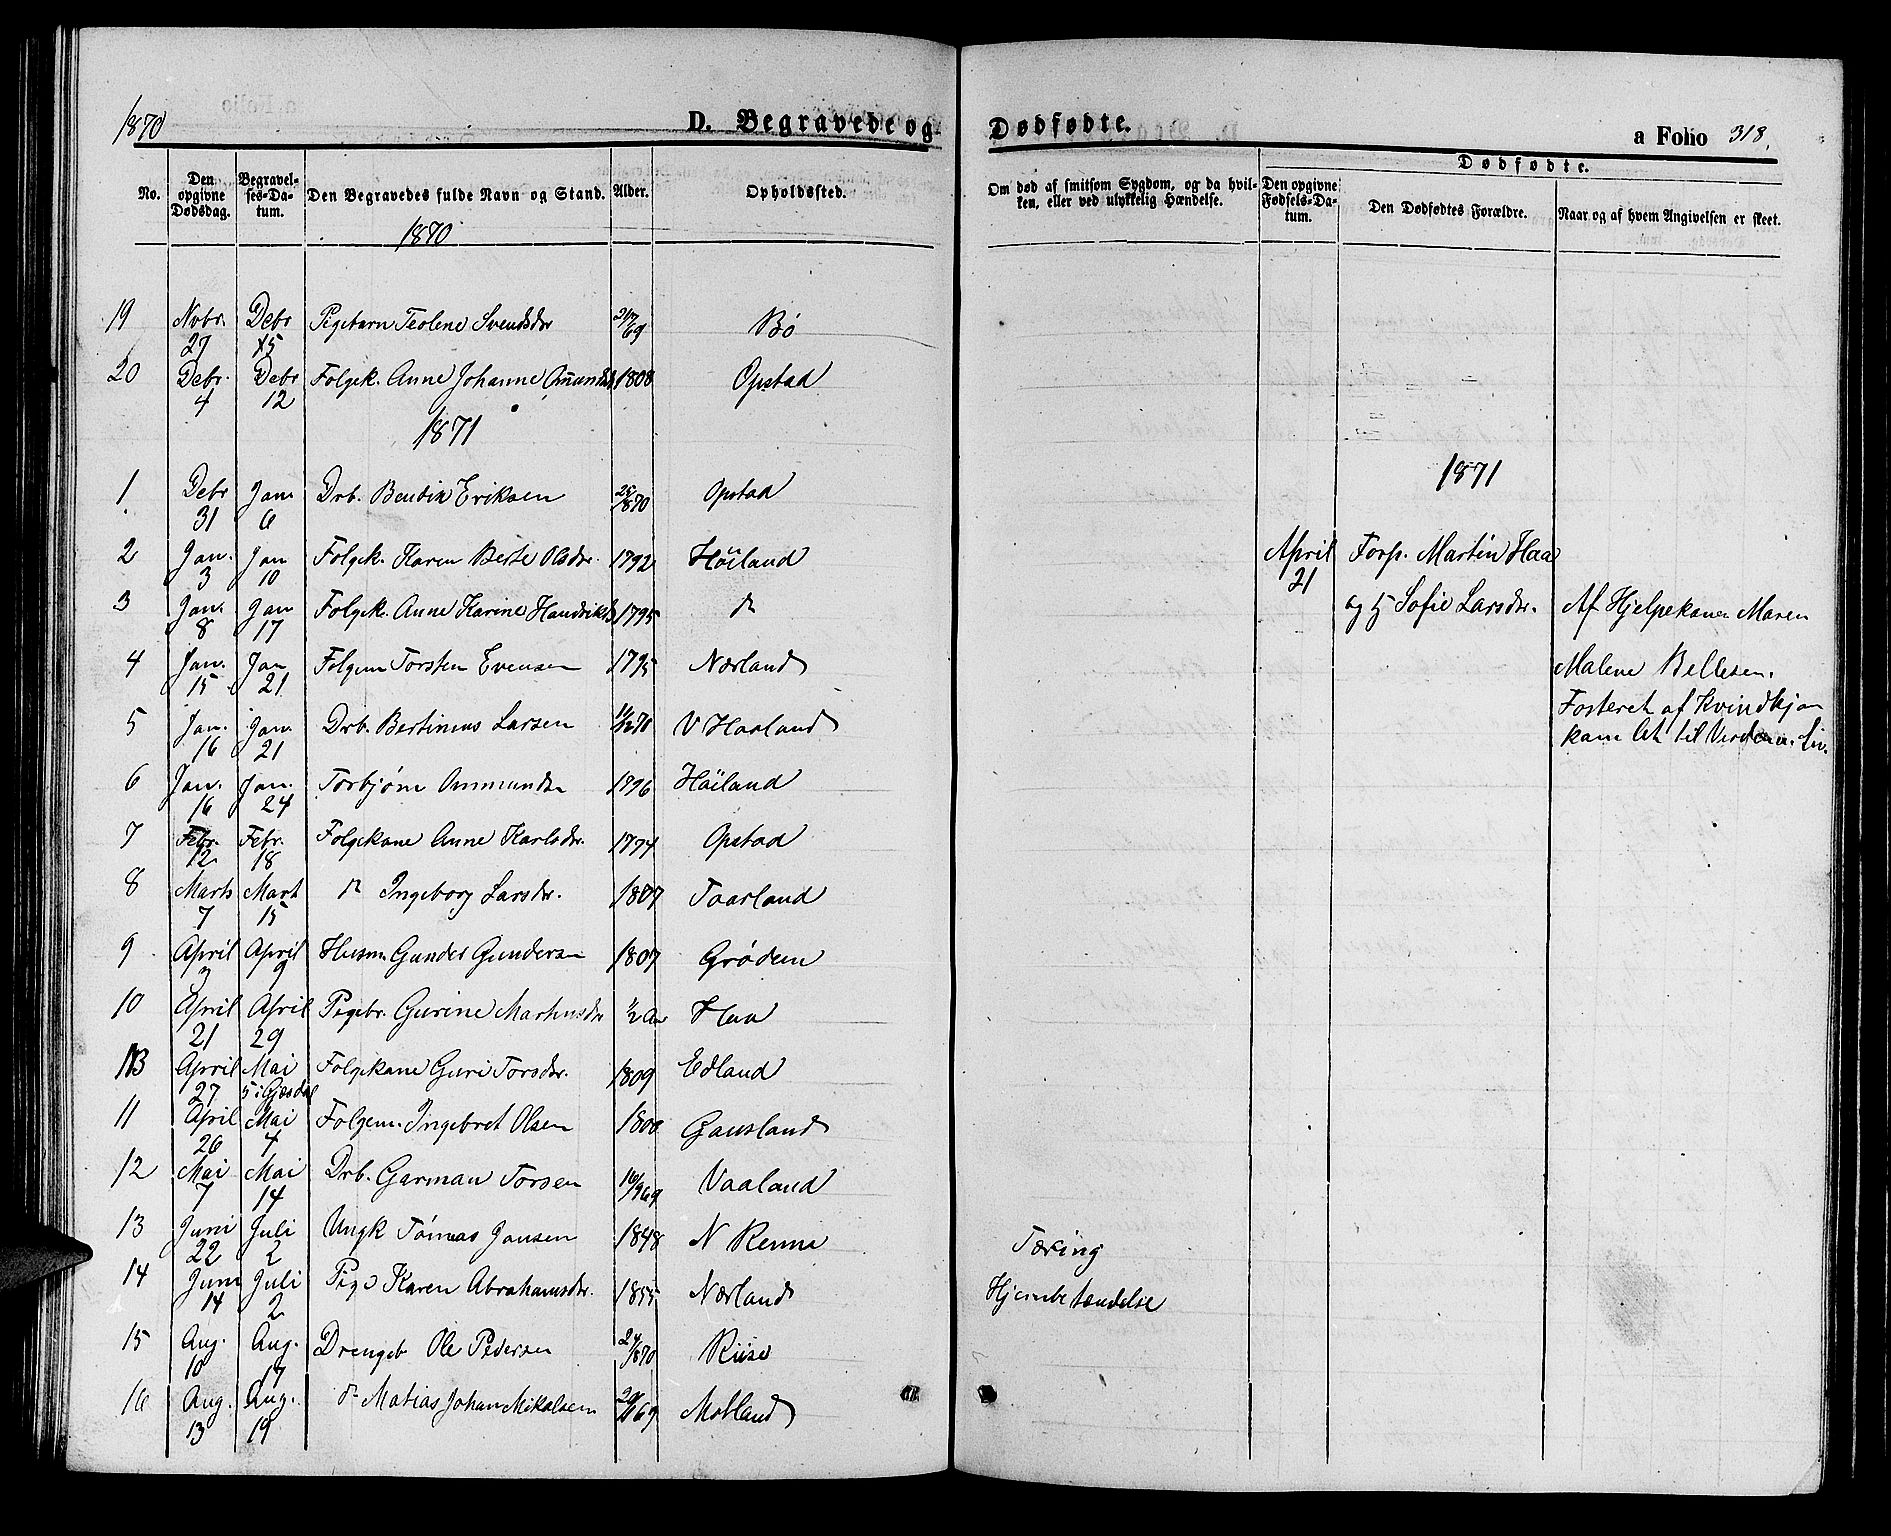 1870
D. Begravede og Dødfødte.
a Folio 318.
No.
Den opgivne Dødsdag.
Begravelses-Datum.
Den Begravedes fulde Navn og Stand.
Alder.
Opholdssted.
Om død af smitsom Sygdom, og da hvilken, eller ved ulykkelig Hændelse.
Dødfødte.
Den opgivne Fødsels-Datum.
Den Dødfødtes Forældre.
Naar og af hvem Angivelsen er skeet.
1870
19 Novbr. 27 Debr 15 Pigebarn Teoline Svendsdr 69 Bø
20 Debr. 4 Debr 12 Folgek. Anne Johanne 1808 Opstad
1871
1 Debr 31 Jan 6 Drb. Bendik Eriksen 1870 Opstad
2 Jan. 3 Jan 10 Folgek. Karen Berte Olsdr. 1792 Höiland
3 Jan. 8 Jan 17 Folgek. Anne Karine 1795 do
4 Jan. 15 Jan 21 Folgem Torsten Evensen 1795 Nærland
5 Jan. 16 Jan. 21 Drb. Bertinius Larsen 70 V Haaland
6 Jan. 16 Jan. 24 Torbjørn 1796 Höiland
7 Febr. 12 Febr. 18 Folgekone Anne Karlsdr. 1774 Opstad
8 Marts 7 Mart 15 do Ingeborg Larsdr. 1807 Taarland
9 April 3 April 9 Husm Gunder Gundersen 1807 Grødem
10 April 21 April 29 Pigebr. Gurine Martinsdr 1/2 Aar Haa
13 April 27 Mai 5 i Gjesdal Folgekone Guri Torsdr. 1809 Edland
11 April 26 Mai 4 Folgem. Ingebret Olsen 1800 Gausland
12 Mai 7 Mai 14 Drb. Garman Torsen 16/9 69 Vaaland
13 Juni 22 Juli 2 Ungk Tönnas Jansen 1848 N Renne Tæring
14 Juni 14 Juli 2 Pige Karen Abrahamsdr. 1855 Nærland Hjernebetændelse
15 Aug. 10 Aug. 17 Drengeb Ole Pedersen 1870 Riise
16 Aug. 13 Aug. 19 do Matias Johan Mikalsen 69 Motland
1871
April 21 Forp. Martin Haa
og h Sofie Larsdr. Af Hjelpekonen Maren
Malene Bellesen.
Fosteret af Kvindkjøn
kom let til Verden u. Liv.